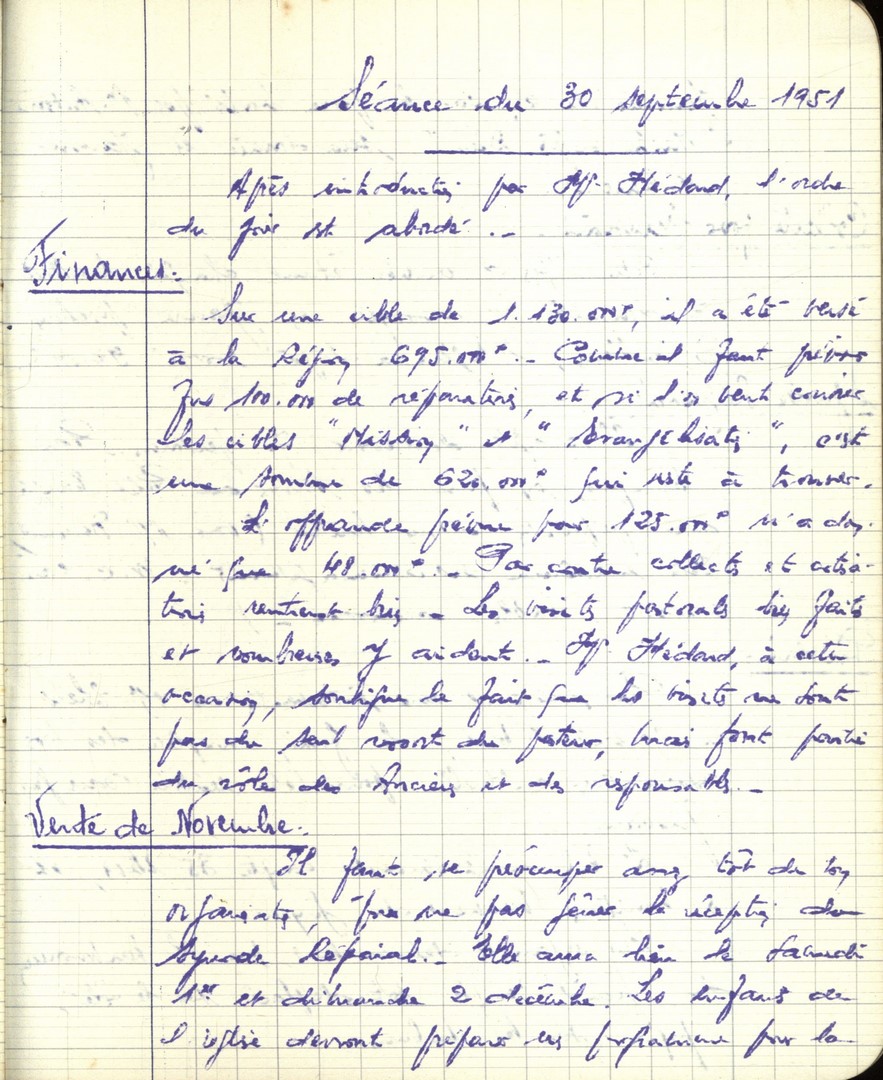 Séance du 30 septembre 1951
Après introduction par Mr Hédand, l'ordre
du jour est abordé. -
Finances.
Sur une cible de 1.130.000F, il a été versé
à la Région 695.000F. - Comme il faut prévoir
100.000 de réparations, et si l'on veut couvrir
les cibles "Mission" et "Evangélisation", c'est
une somme de 620.000F qui reste à trouver.
L'offrande prévue pour 125.000F n'a don-
né que 48.000F. - Par contre collectes et cotisa-
tions rentrent bien - Les visites pastorales bien faites
et nombreuses y aident. - Mr Hédand, à cette
occasion, souligne le fait que les visites ne sont
pas du seul ressort du pasteur, mais font partie
du rôle des Anciens et des responsables. -
Vente de Novembre.
Il faut se préoccuper assez tôt de son
organisation, pour ne pas gêner la réception du
Synode Régional. - Elle aura lieu le Samedi
1er et dimanche 2 décembre. Les enfants de
l'église devront préparer un programme pour la